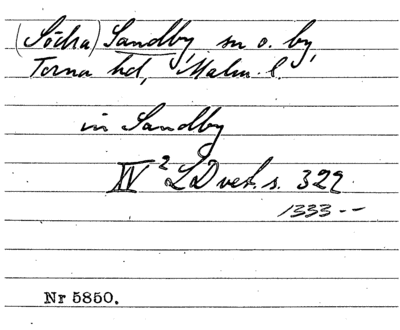 (Södra) Sandby, sn o. by,
Torna hd, Malm. l.
in Sandby
XIV 2 LDvet. s. 322
1333 --
Nr 5850.